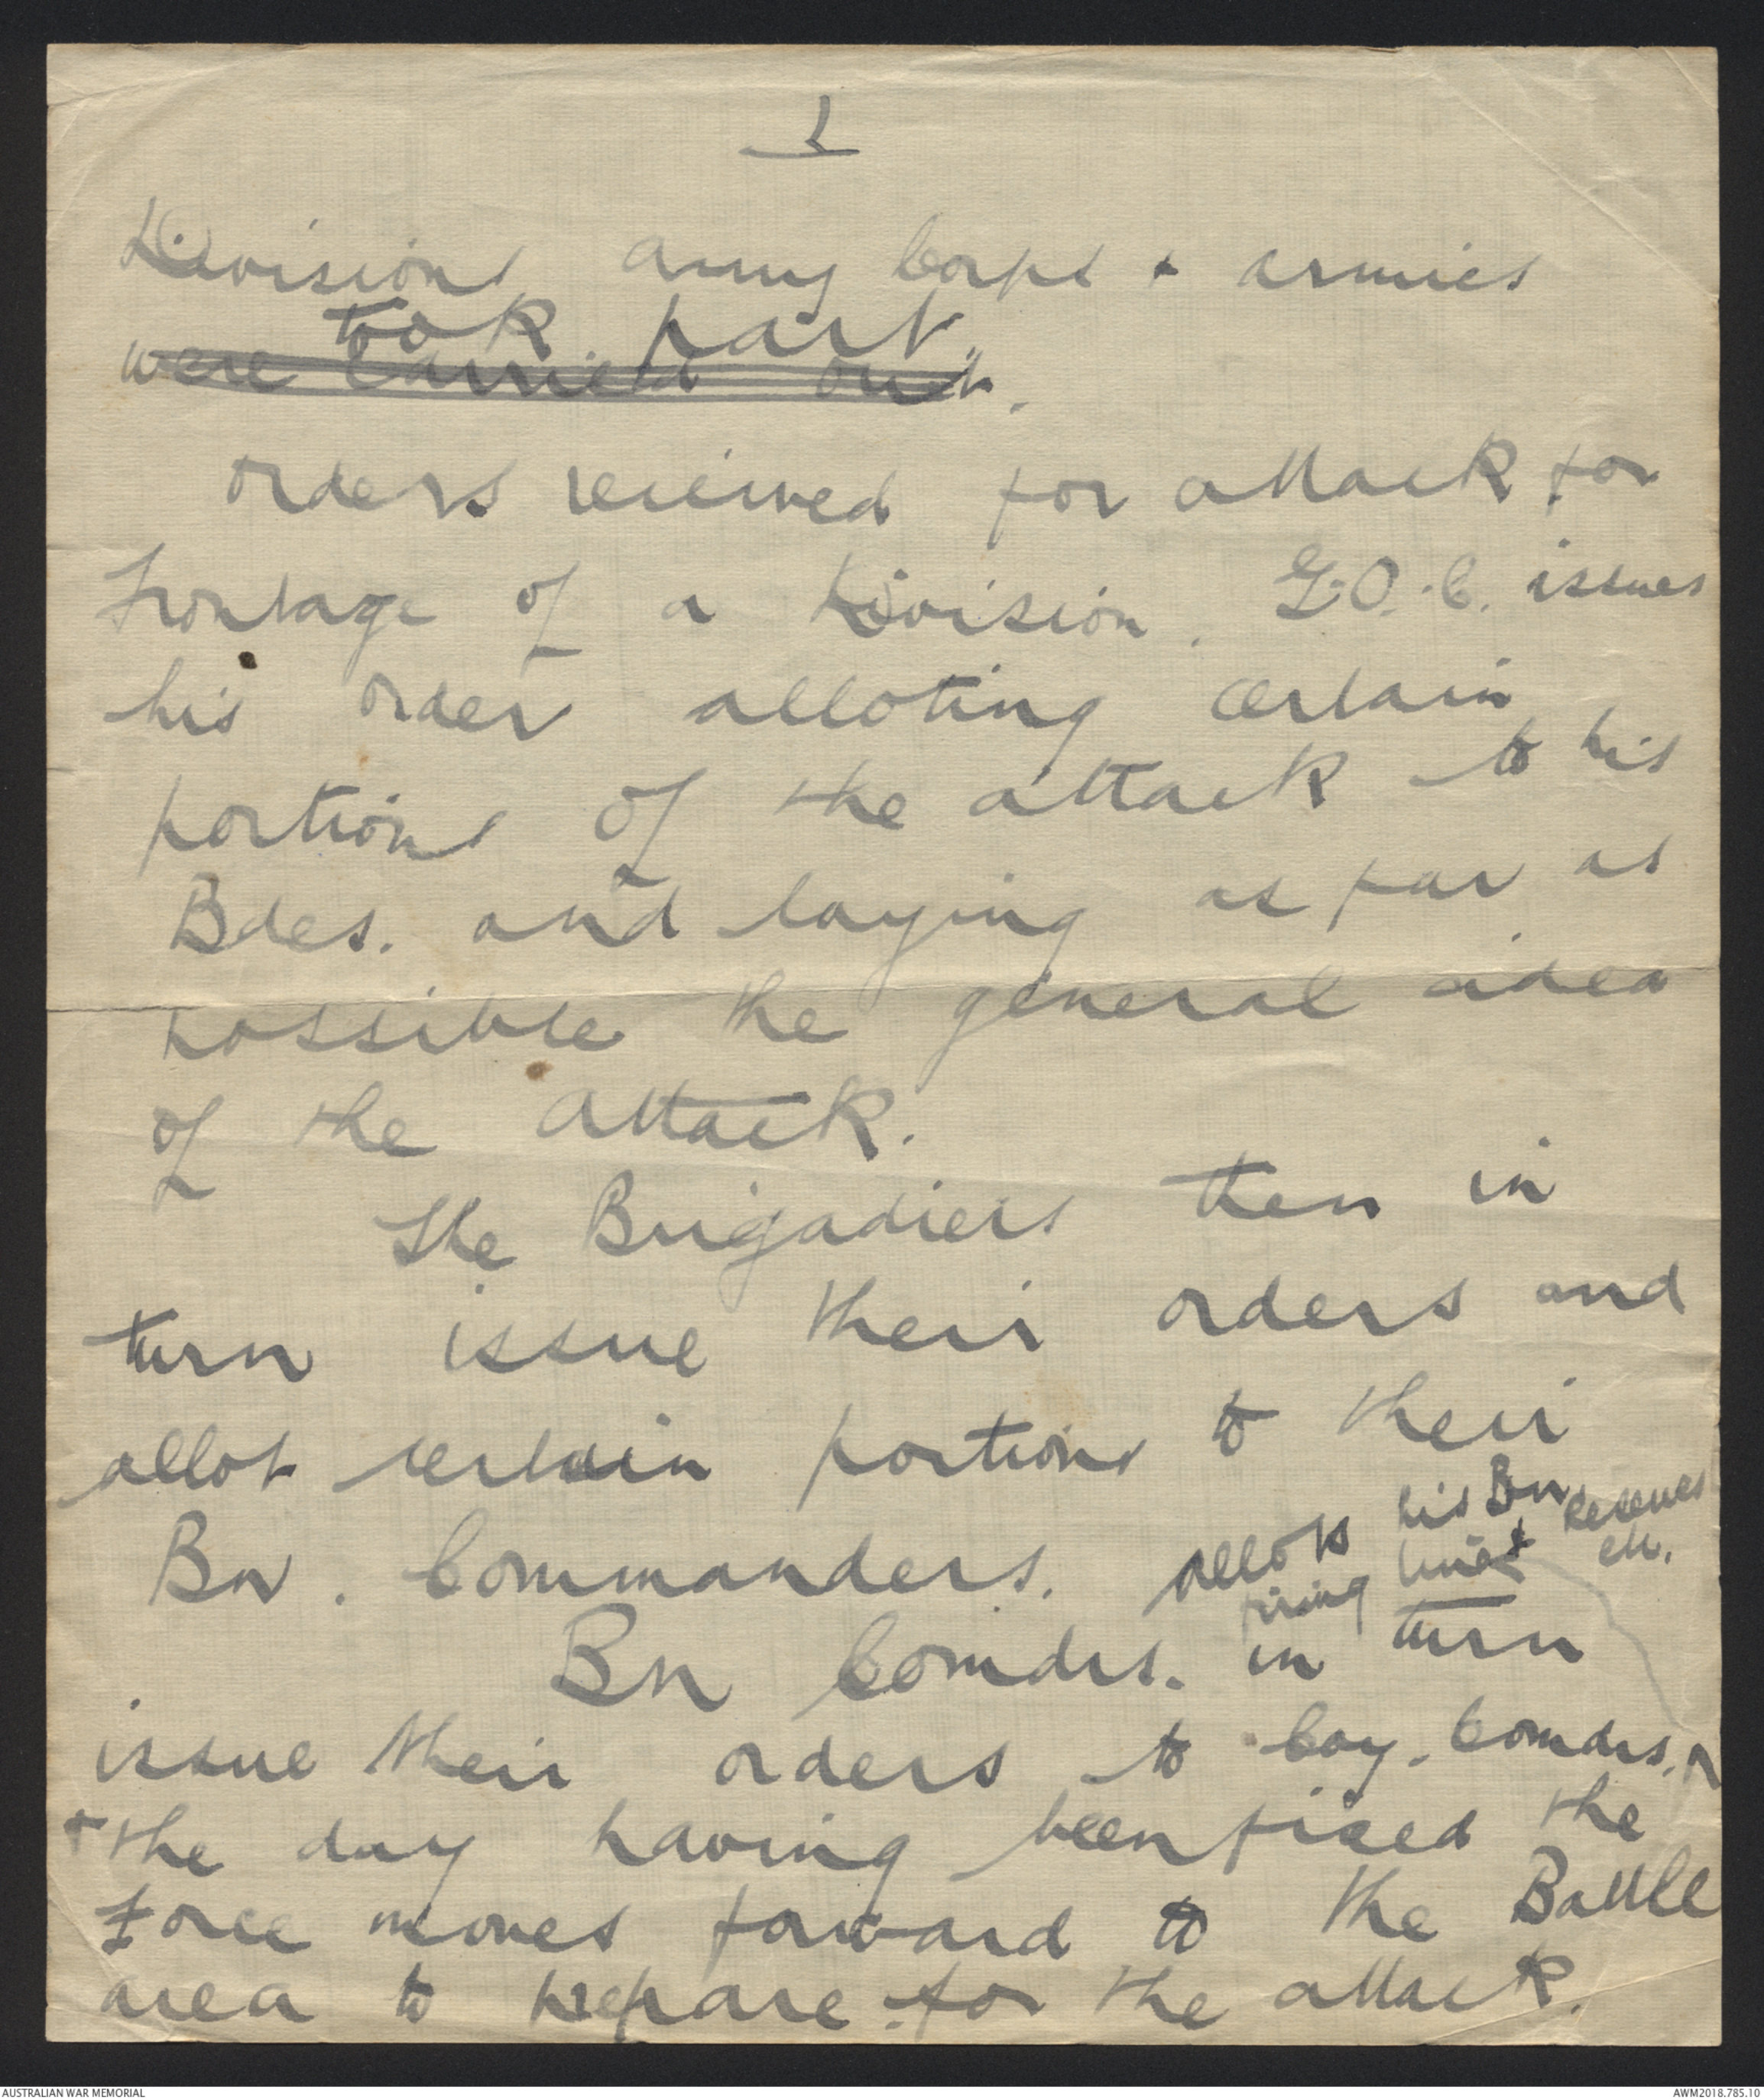 1
Divisions army Corps + armies
took part.
were carried out.
orders received for attack for
frontage of a Division. G.O.C. issues
his order alloting certain
portions of the attack to his
Bdes. and laying as far as
possible the general idea
of the attack.
The Brigadiers then in
turn issue their orders and
allot certain portions to their
Bn. Commanders. allots his Bn Reserves
firing line & etc.
Bn Comdrs. in turn
issue their orders to Coy. Comdrs.
+ the day having been fixed the
force moves forward to the Battle
area to prepare for the attack.
AUSTRALIAN WAR MEMORIAL
AWM2018.785.10